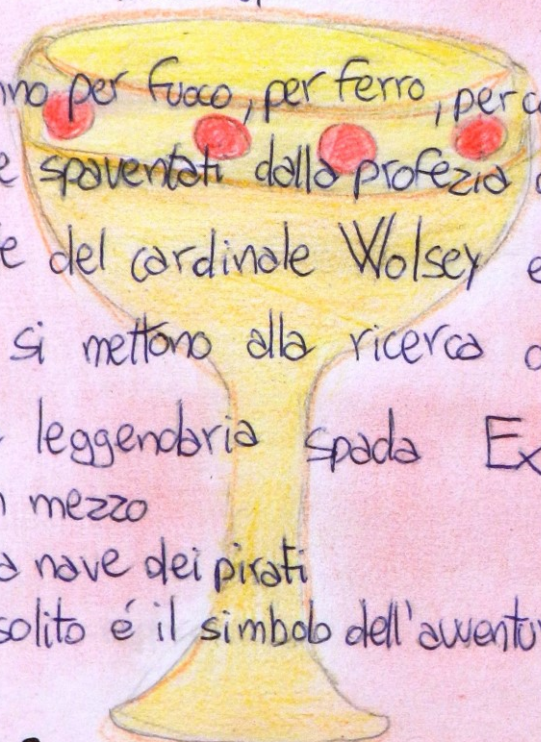 per fuoco, per ferro, per
e spaventati dalla profezia
del cardinale Wolsey e
si mettono alla ricerca
leggendaria spada Ex
mezzo
a nave dei pirati
solito é il simbolo dell'avventu